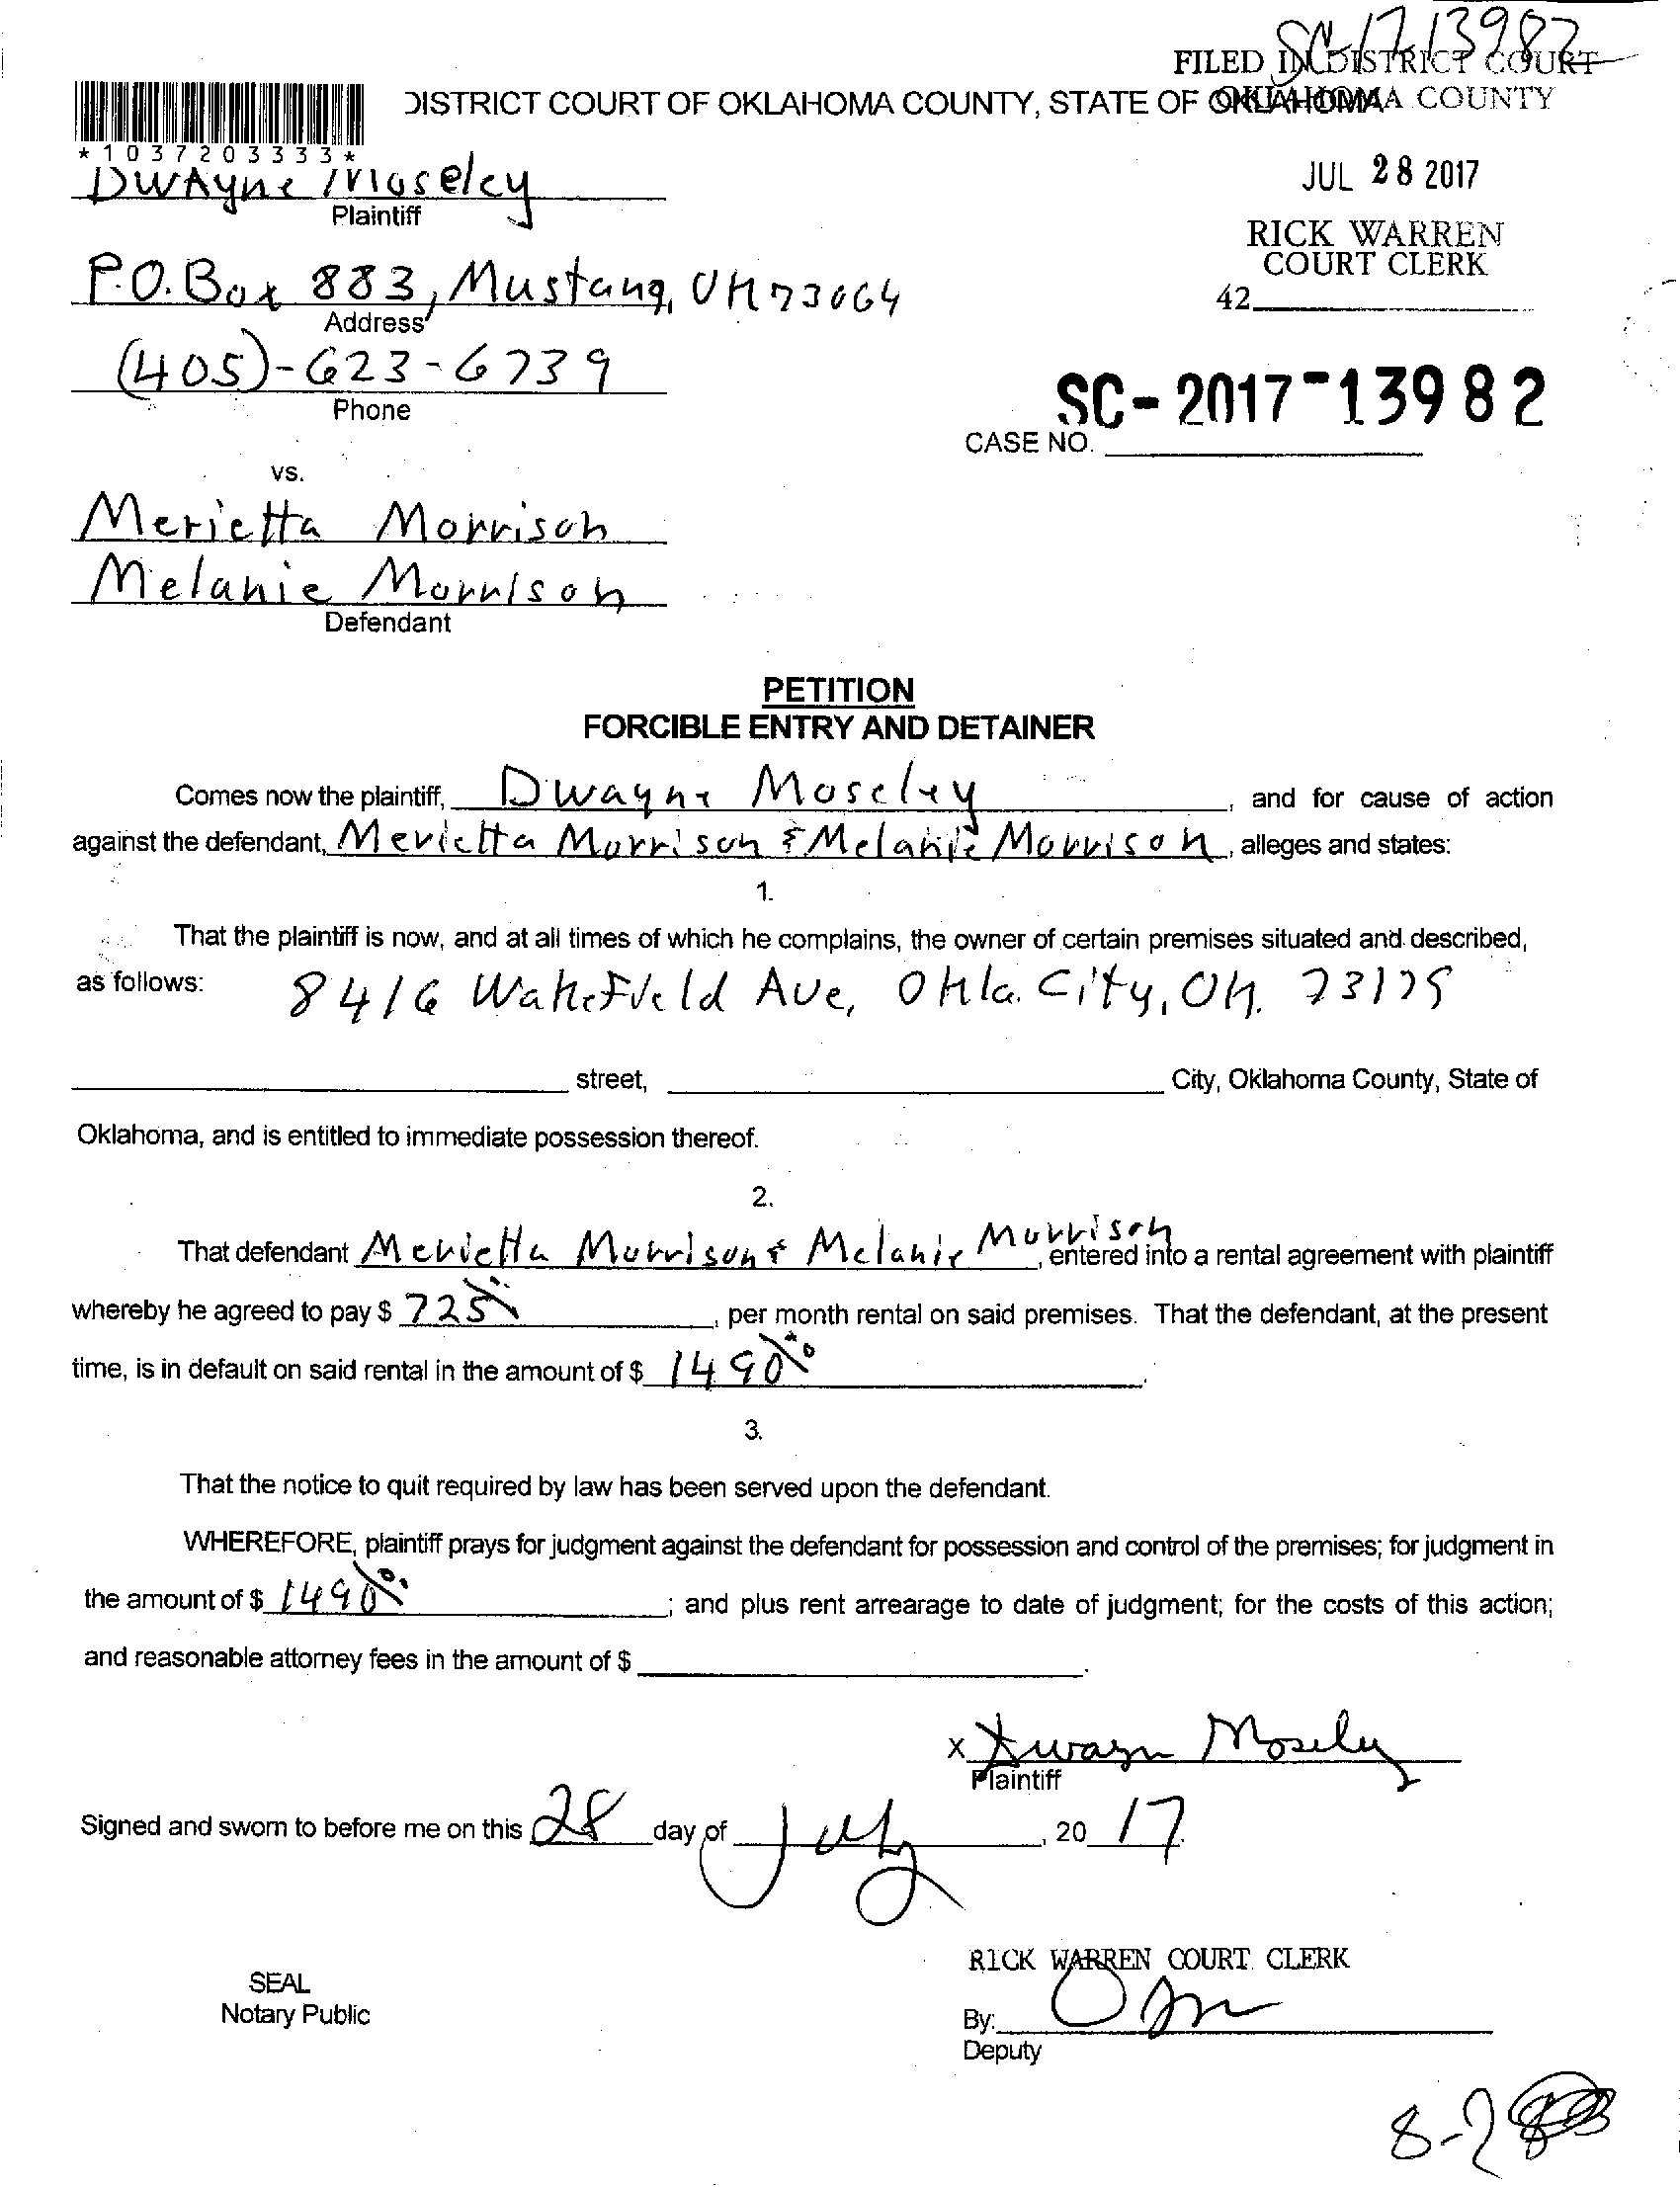 SC-17-13982
FILED IN DISTRICT COURT
DISTRICT COURT OF OKLAHOMA COUNTY, STATE OF OKLAHOMA
OKLAHOMA COUNTY
*1037203333*
JUL 28 2017
DWAyne Moseley
Plaintiff
RICK WARREN
COURT CLERK
P.O. Box 883, Mustang, OK 73064
Address
42
(405)-623-6739
Phone
SC-2017-13982
CASE NO.
vs.
Merietta Morrison
Melanie Morrison
Defendant
PETITION
FORCIBLE ENTRY AND DETAINER
Comes now the plaintiff, Dwayne Moseley, and for cause of action
against the defendant, Merietta Morrison & Melanie Morrison, alleges and states:
1.
That the plaintiff is now, and at all times of which he complains, the owner of certain premises situated and described,
as follows: 8416 Wakefield Ave, Okla. City, OK.
street, City, Oklahoma County, State of
Oklahoma, and is entitled to immediate possession thereof.
2.
That defendant Merietta Morrison & Melanie Morrison, entered into a rental agreement with plaintiff
whereby he agreed to pay $ 725, per month rental on said premises. That the defendant, at the present
time, is in default on said rental in the amount of $ 1490 00.
3.
That the notice to quit required by law has been served upon the defendant.
WHEREFORE, plaintiff prays for judgment against the defendant for possession and control of the premises; for judgment in
the amount of $ 1490 00; and plus rent arrearage to date of judgment; for the costs of this action;
and reasonable attorney fees in the amount of $.
x Dwayne Moseley
Plaintiff
Signed and sworn to before me on this 28 day of July, 20 17.
RICK WARREN COURT CLERK
SEAL
Notary Public
By:
Deputy
8-2